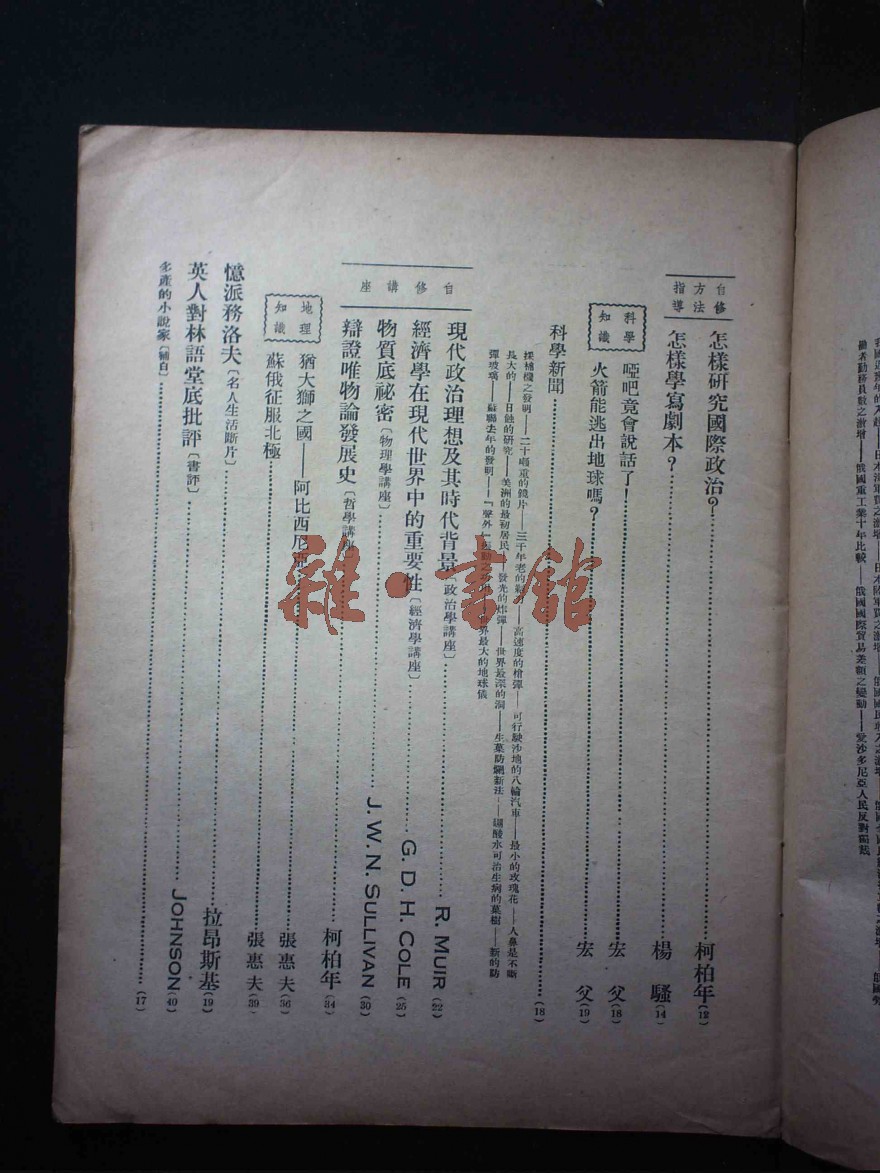 自修
方法
指導
怎樣研究國際政治？ 柯柏年(12)
怎樣學寫劇本？ 楊騷(14)
科學
知識
啞吧竟會說話了！ 宏父(18)
火箭能逃出地球嗎？ 宏父(19)
科學新聞 (18)
採補機之發明——二十噸重的鏡片——三千年老的 高速度的槍彈——可行駛沙地的八輪汽車——最小的玫瑰花——人鼻是不斷
長大的——日蝕的研究——美洲的最初居民——發光的炸彈——世界最深的洞——生菓防爛新法——硼酸水可治生病的菓樹——新的防
彈玻璃——蘇聯去年的發明——「聲外」 世界最大的地球儀
自修講座
現代政治理想及其時代背景〔政治學講座〕 R. MUIR(22)
經濟學在現代世界中的重要性〔經濟學講座〕 G. D. H. COLE(25)
物質底祕密〔物理學講座〕 J. W. N. SULLIVAN(30)
辯證唯物論發展史〔哲學講座〕 柯柏年(34)
地理
知識
猶大獅之國——阿比西尼亞 張惠夫(36)
蘇俄征服北極 張惠夫(39)
憶派務洛夫〔名人生活斷片〕 拉昂斯基(19)
英人對林語堂底批評〔書評〕 JOHNSON(40)
多產的小說家〔補白〕 (17)
雜·書館
俄國重工業十年比較——俄國國際貿易差額之變動——愛沙多尼亞人民反對獨裁